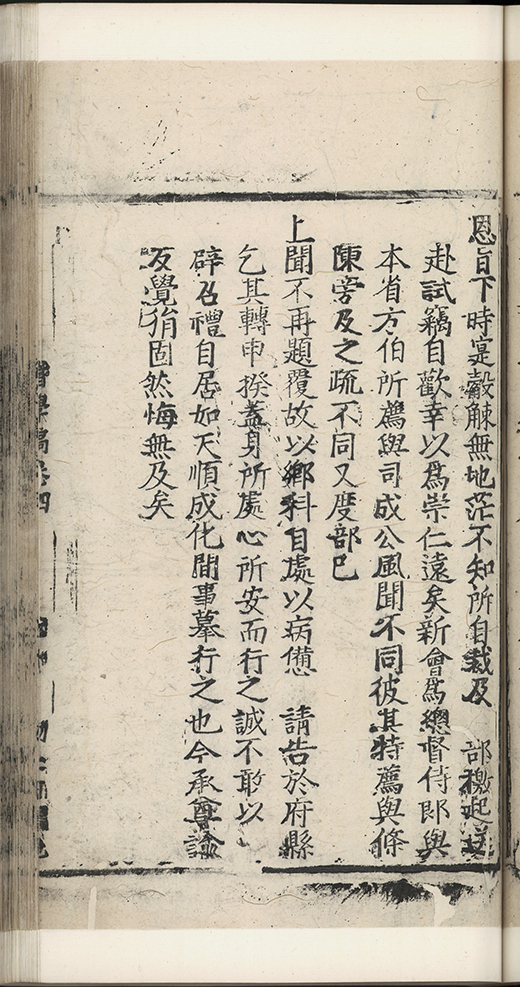 恩旨下時寔觳觫無地茫不知所自裁及　部檄起送
赴試竊自歡幸以爲崇仁遠矣新會爲總督侍郎與
本省方伯所薦與司成公風聞不同彼其特薦與條
陳旁及之疏不同又度部已
上聞不再題覆故以鄉科自處以病憊　請告於府縣
乞其轉申揆蓋身所處心所安而行之誠不敢以
辟召禮自居如天順成化間事摹行之也今承尊諭
反覺狷固然悔無及矣
卷四